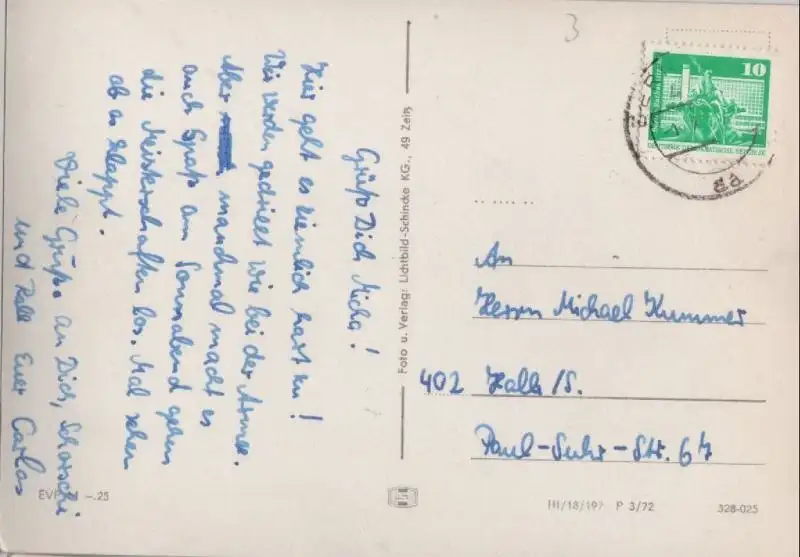 Grüß Dich Micha!
Hier geht es ziemlich hart zu!
Wir werden gedrillt wie bei der Armee.
Aber manchmal macht es
auch Spaß. Am Sonnabend gehen
die Meisterschaften los. Mal sehen
ob es klappt.
Viele Grüße an Dich,
und Ralf Euer Carlos
EVP –.25
Foto u. Verlag: Lichtbild-Schincke KG., 49 Zeitz
3
10
DEUTSCHE DEMOKRATISCHE REPUBLIK
An
Herrn Michael Kummer
402 Halle/S.
Paul-Suhr-Str. 67
III/18/197 P 3/72
328-025